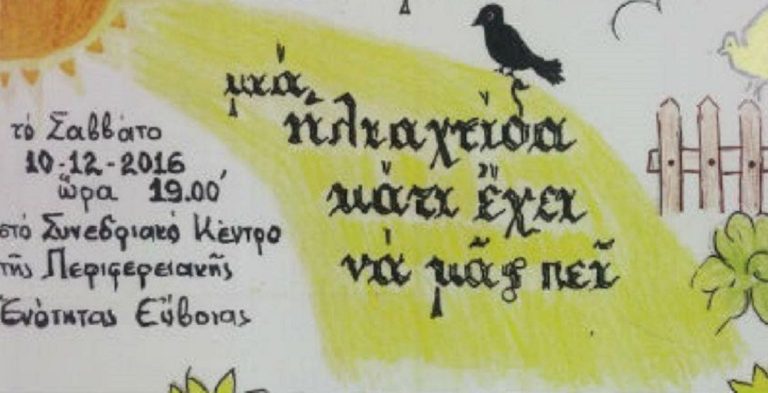 τό Σαββάτο
10-12-2016
ὥρα 19.00'
στό Συνεδριακό Κέντρο
τῆς Περιφερειακῆς
Ἑνότητας Εὔβοιας
μιά
ἡλιαχτίδα
κάτι ἔχει
νά μᾶς πεῖ